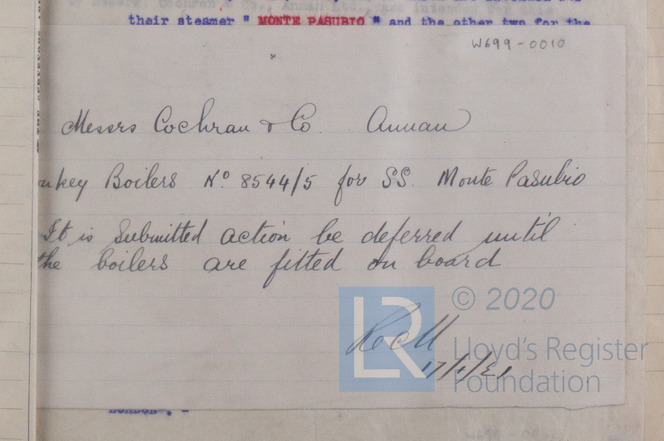 their steamer " MONTE PASUBIO " and the other two for the
W699-0010
Messrs Cochran & Co. Annan
nkey Boilers No. 8544/5 for SS. Monte Pasubio
It is submitted action be deferred until
the boilers are fitted on board
LR
© 2020
Lloyd's Register
Foundation